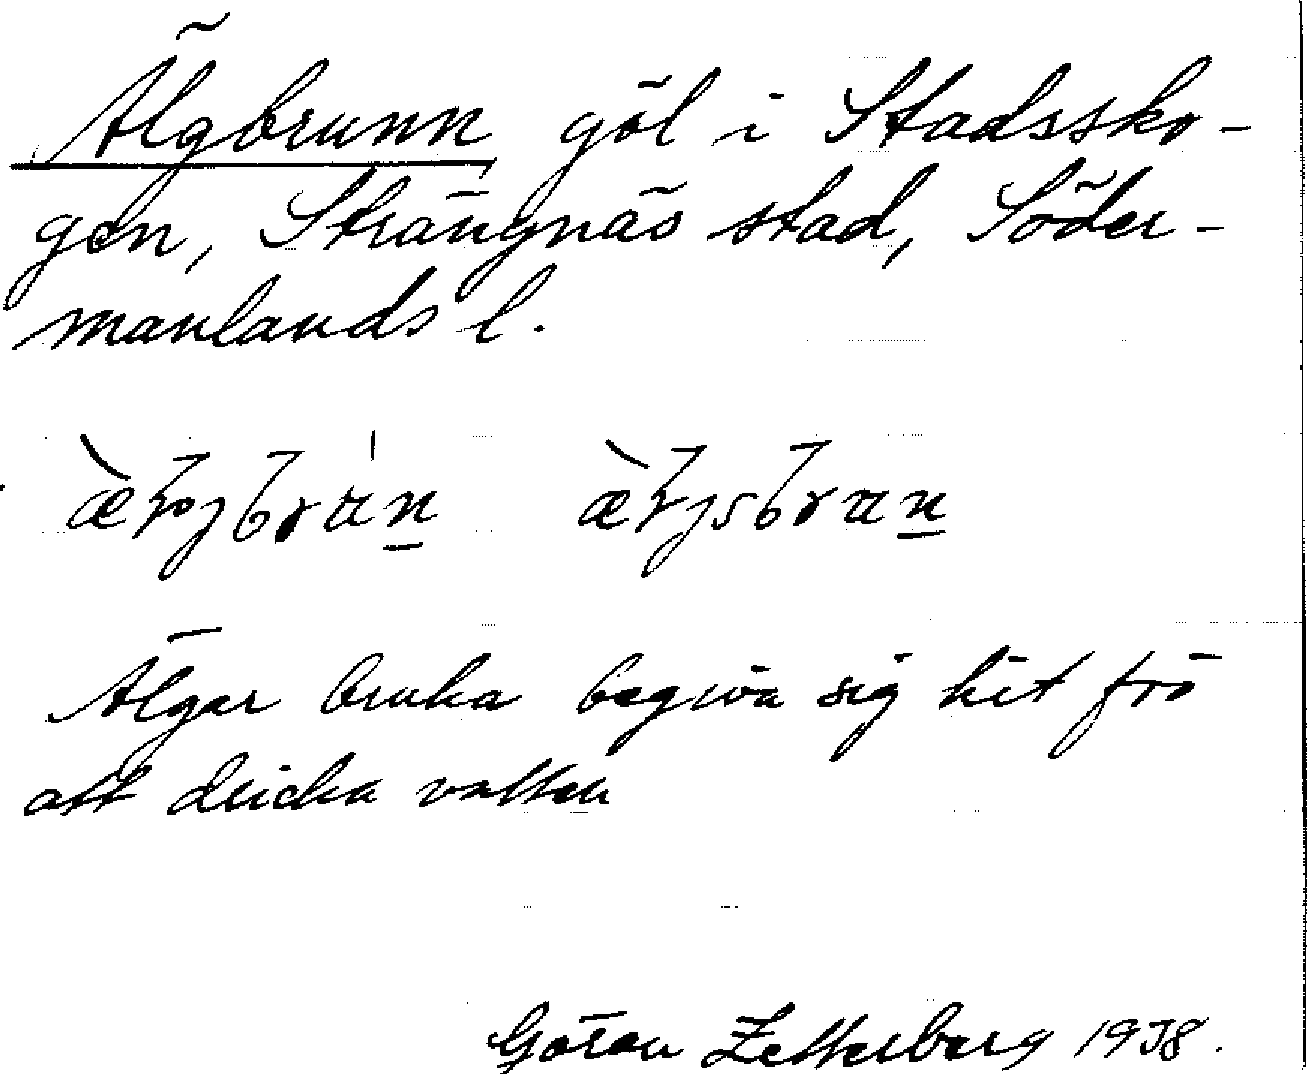 Älgbrunn göl i Stadssko-
gen, Strängnäs stad, Söder-
manlands l.
Älgar bruka begiva sig hit för
att dricka vatten
Göran Zetterberg 1938.